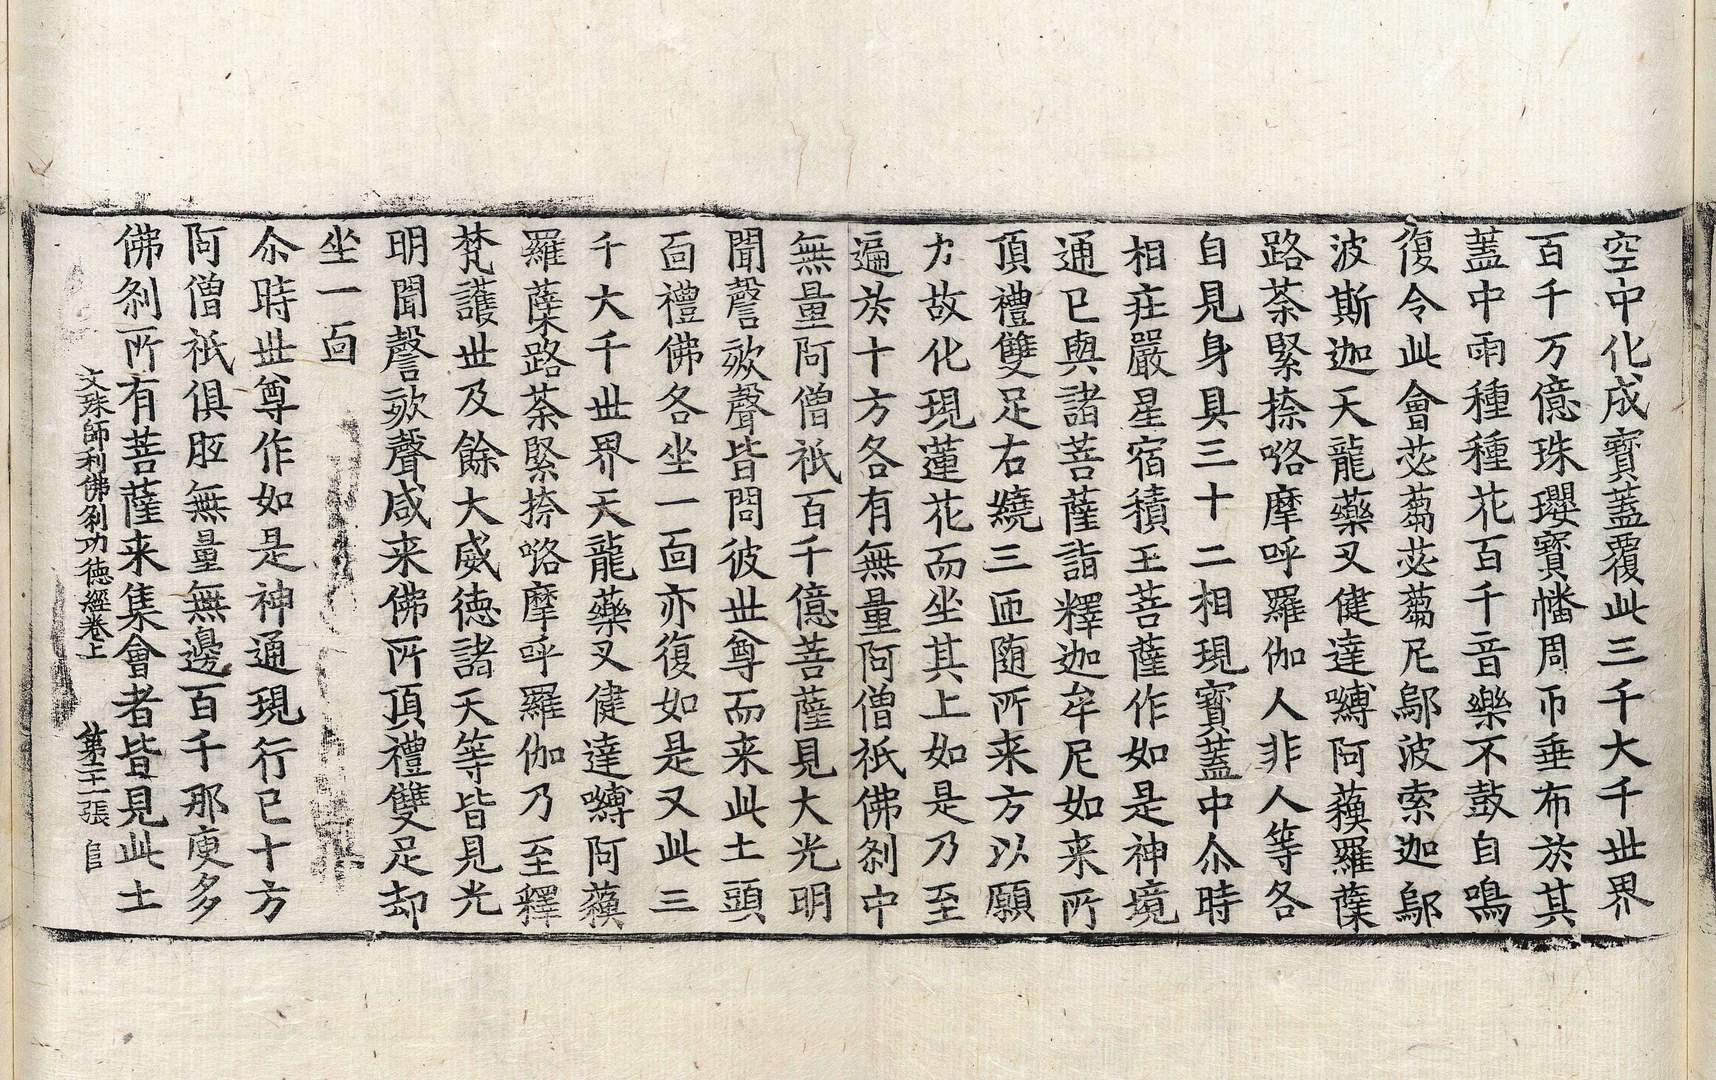 空中化成寶蓋覆此三千大千世界
百千万億珠瓔寶幡周帀垂布於其
蓋中雨種種花百千音樂不鼓自鳴
復令此會苾蒭苾蒭尼鄔波索迦鄔
波斯迦天龍藥叉健達嚩阿蘇羅蘗
路荼緊捺咯摩呼羅伽人非人等各
自見身具三十二相現寶蓋中尒時
相莊嚴星宿積王菩薩作如是神境
通已與諸菩薩詣釋迦牟尼如来所
頂禮雙足右繞三匝随所来方以願
力故化現蓮花而坐其上如是乃至
遍於十方各有無量阿僧祇佛剎中
無量阿僧祇百千億菩薩見大光明
聞謦欬聲皆問彼世尊而来此土頭
面禮佛各坐一面亦復如是又此三
千大千世界天龍藥叉健達嚩阿蘇
羅蘗路荼緊捺咯摩呼羅伽乃至釋
梵護世及餘大威徳諸天等皆見光
明聞謦欬聲咸来佛所頂禮雙足却
坐一面
尒時世尊作如是神通現行已十方
阿僧祇俱胝無量無邊百千那庾多
佛剎所有菩薩来集會者皆見此土
文殊師利佛剎功徳經卷上 第二十一張 官